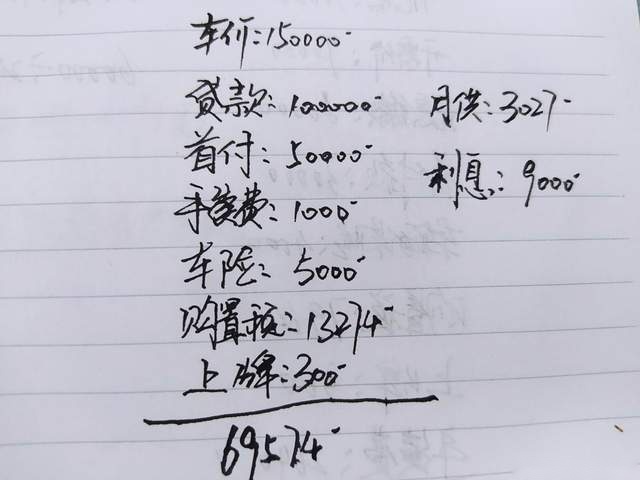 车价:150000
贷款:100000 月供:3027
首付:50000 利息:9000
手续费:1000
车险:5000
购置税:13274
上牌:300
69574